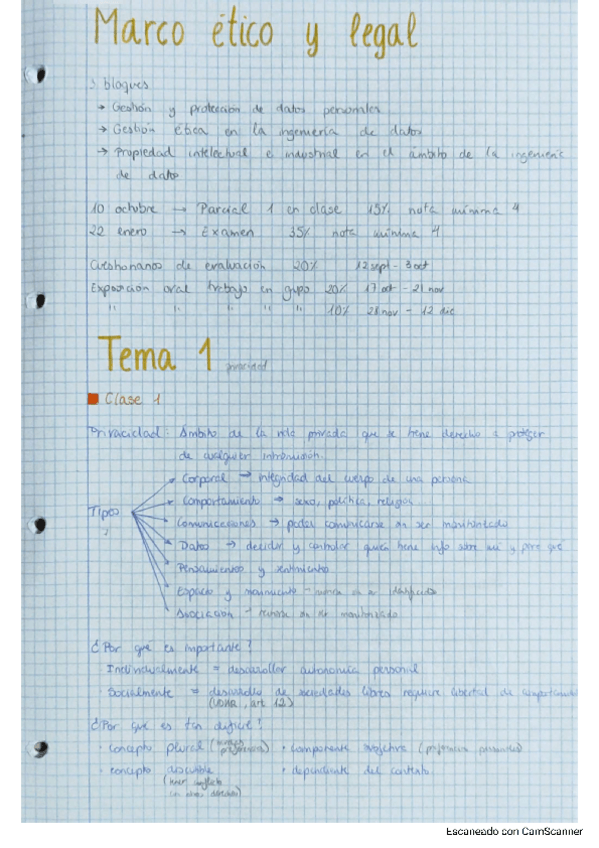 Marco ético y legal
3 bloques
→ Gestión y protección de datos personales
→ Gestión ética en la ingeniería de datos
→ Propiedad intelectual e industrial en el ámbito de la ingeniería
de datos
10 octubre → Parcial 1 en clase 15% nota mínima 4
22 enero → Examen 35% nota mínima 4
Cuestionarios de evaluación 20% 12 sept - 3 oct
Exposición oral trabajo en grupo 20% 17 oct - 21 nov
" " " " " 10% 28 nov - 12 dic
Tema 1 privacidad
Clase 1
Privacidad: Ámbito de la vida privada que se tiene derecho a proteger
de cualquier intromisión.
Tipos
Corporal → integridad del cuerpo de una persona
Comportamiento → sexo, política, religión...
Comunicaciones → poder comunicarse sin ser monitorizado
Datos → decidir y controlar quién tiene info sobre mí y por qué
Pensamientos y sentimientos
Espacio y movimiento - sin ser identificado
Asociación - sin ser monitorizado
¿Por qué es importante?
· Individualmente = desarrollar autonomía personal
· Socialmente = desarrollo de sociedades libres requiere libertad de comportamiento
(UDHR, art 12)
¿Por qué es tan difícil?
· concepto plural · componente subjetivo (preferencias personales)
· concepto discutible · dependiente del contexto
Escaneado con CamScanner